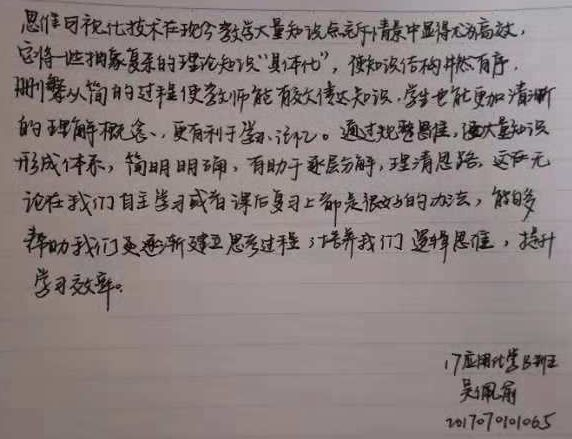 思维可视化技术在现今教学大量知识点充斥情景中显得尤为高效，
它将一些抽象复杂的理论知识"具体化"，使知识结构井然有序，
删繁从简的过程使教师能有效传达知识，学生也能更加清晰
的理解概念、更有利于学习、记忆。通过规整思维，使大量知识
形成体系，简明明确，有助于逐层分解，理清思路，这在无
论在我们自主学习或者课后复习上都是很好的办法，能够
帮助我们更逐渐建立思考过程，培养我们逻辑思维，提升
学习效率。
17应用化学B班
吴佩俞
20170701065